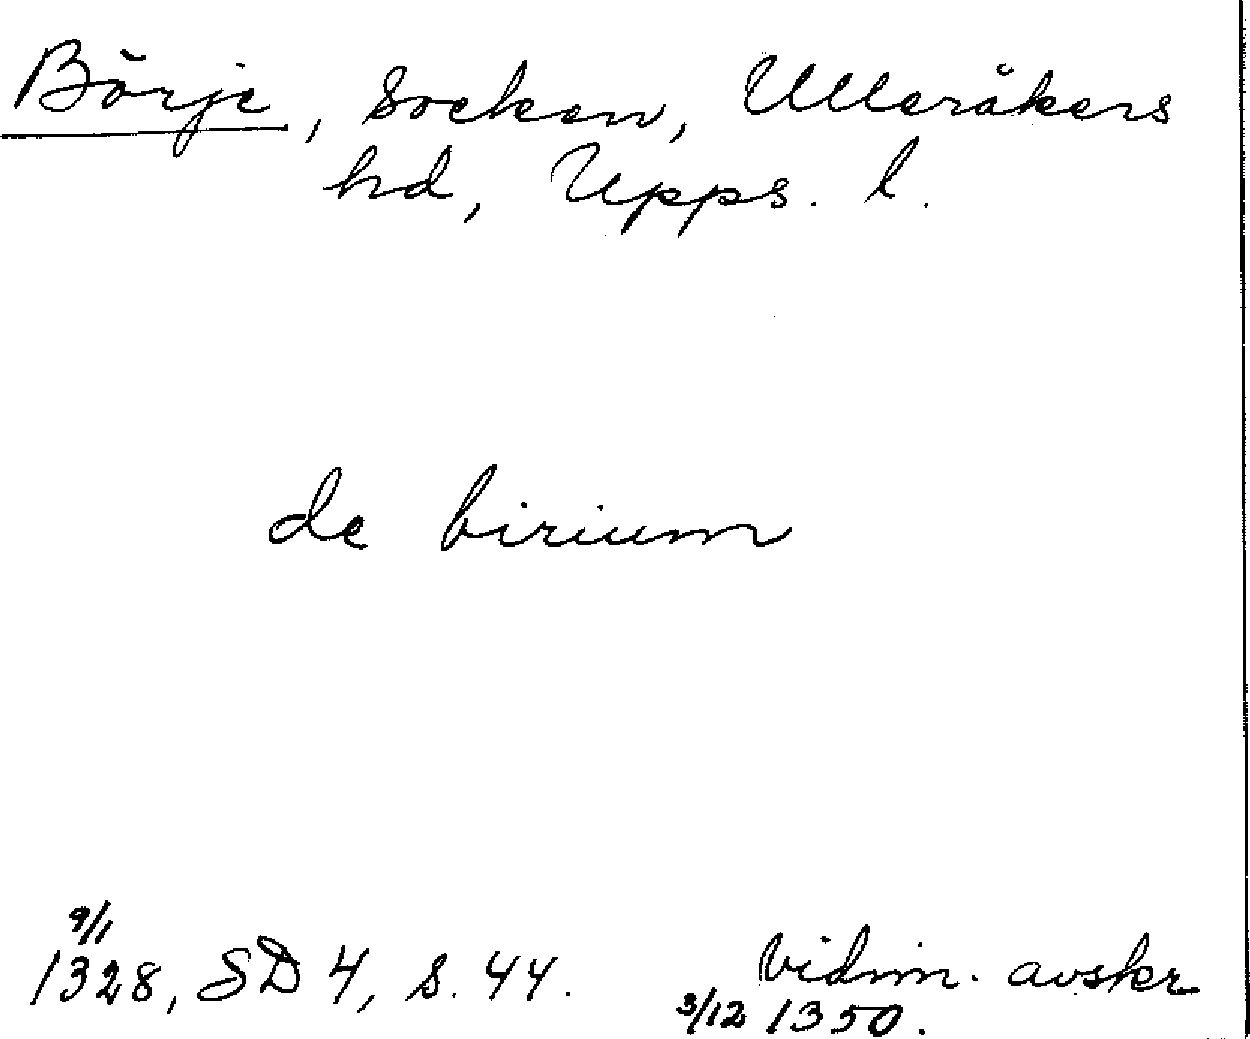 Börje, Socken, Ulleråkers
hd, Upps. l.
de birium
9/1
1328, SD 4, s. 44.
Vidim. avskr
3/12 1350.